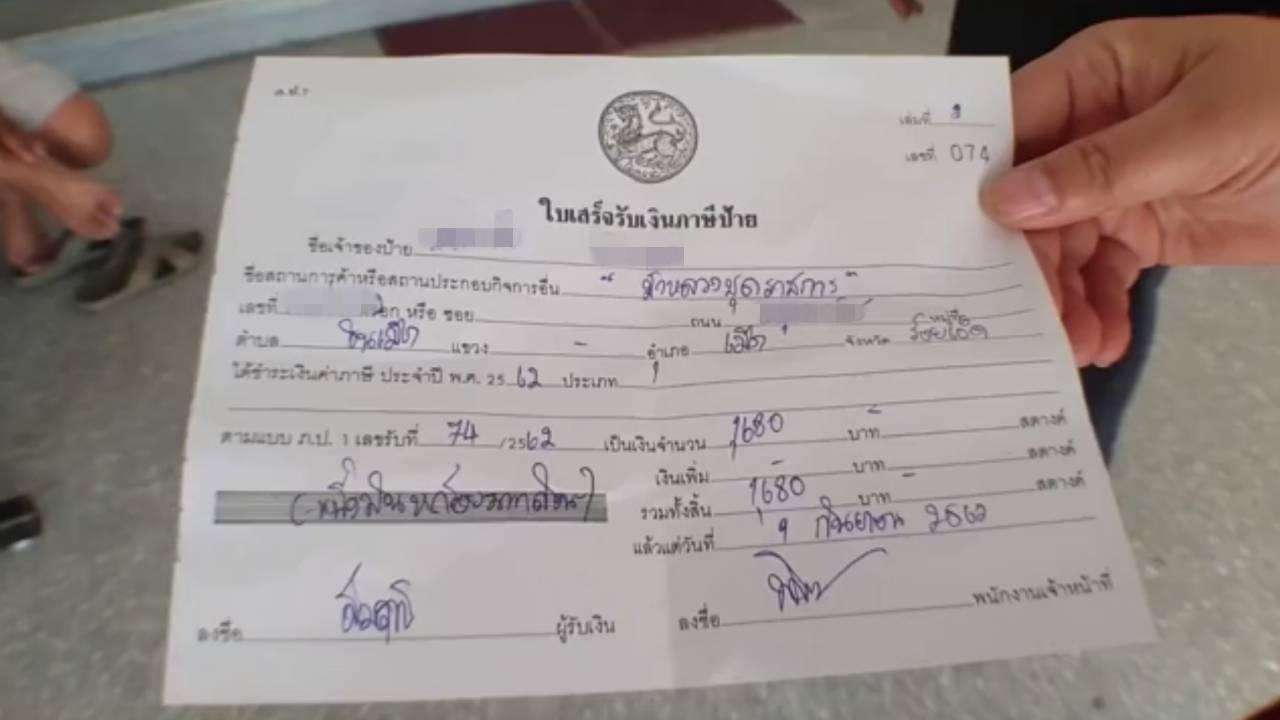 ภ.ป.7
เล่มที่ 3
เลขที่ 074
ใบเสร็จรับเงินภาษีป้าย
ชื่อเจ้าของป้าย
ชื่อสถานการค้าหรือสถานประกอบกิจการอื่น " ห้างลวงชุดราชการ "
เลขที่ ตรอก หรือ ซอย ถนน
ตำบล ในเมือง แขวง - อำเภอ เมือง จังหวัด ร้อยเอ็ด
ได้ชำระเงินค่าภาษี ประจำปี พ.ศ. 25 62 ประเภท
ตามแบบ ภ.ป. 1 เลขรับที่ 74 /2562 เป็นเงินจำนวน 1,680 บาท - สตางค์
เงินเพิ่ม - บาท สตางค์
(-หนึ่งพันหกร้อยแปดสิบบาทถ้วน-) รวมทั้งสิ้น 1,680 บาท - สตางค์
แล้วแต่วันที่ 9 กันยายน 2562
ลงชื่อ ผู้รับเงิน ลงชื่อ พนักงานเจ้าหน้าที่